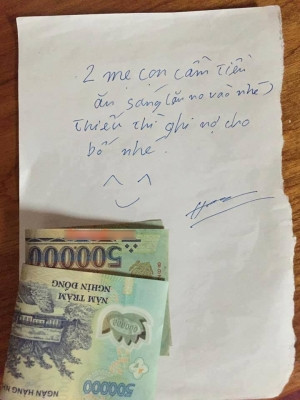 2 mẹ con cầm tiền
ăn sáng (ăn no vào nhé)
Thiếu thì ghi nợ cho
bố nhé.
500.000
NĂM TRĂM
NGHÌN ĐỒNG
NGÂN HÀNG NH
500.000